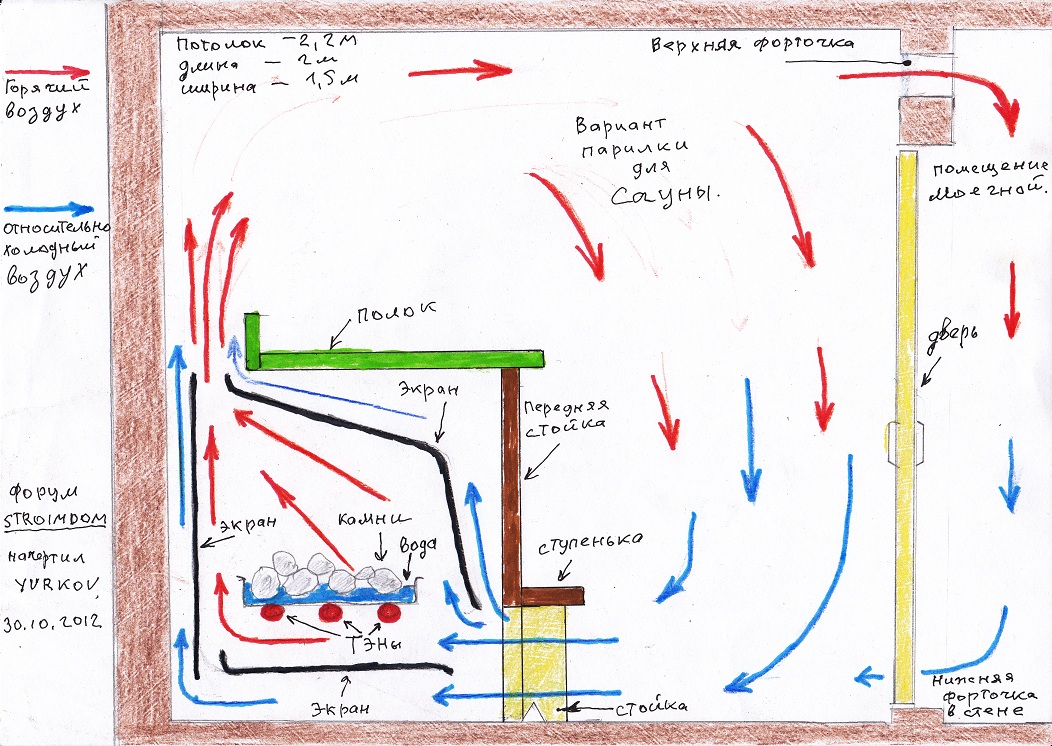 Потолок - 2,2 м
длина - 2 м
ширина - 1,5 м
Верхняя форточка
Горячий
воздух
Вариант
парилки
для
Сауны.
помещение
моечной.
относительно
холодный
воздух
полок
дверь
экран
передняя
стойка
форум
STROIMDOM
начертил
YURKOV,
30.10.2012
экран
камни
вода
ступенька
ТЭНы
экран
стойка
нижняя
форточка
в стене